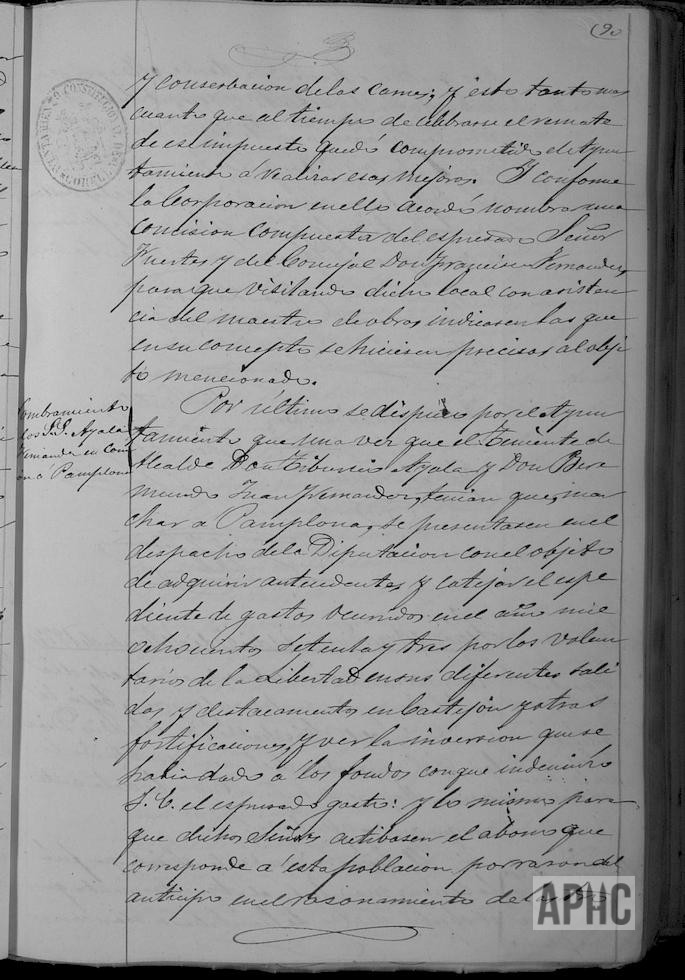 9
y conserbacion de las carnes; y esto tanto mas
cuanto que al tiempo de celebrarse el remate
de ese impuesto quedó comprometido el Ayun
tamiento á realizar esas mejoras. Y conforme
la Corporacion en ello acordó nombrar una
comision compuesta del espresado Señor
Fuertes y del Concejal Don Francisco Fernandez
para que visitando dicho local con asisten
cia del maestro de obras indicasen las que
en su concepto se hiciesen precisas al obje
tó mencionado.
Nombramiento
los S.S. Ayala
Fernandez en Comi
on á Pamplona
Por último se dispuso por el Ayun
tamiento que una vez que el Teniente de
Alcalde Don Tiburcio Ayala y Don Bere
mundo Juan Fernandez, tenian que mar
char a Pamplona, se presentasen en el
despacho de la Diputacion con el objeto
de adquirir antecedentes y cotejar el espe
diente de gastos ocurridos en el año mil
ochocientos setenta y tres por los volun
tarios de la Libertad en sus diferentes sali
das y destacamentos en Castejon y otras
fortificaciones, y ver la inversion que se
habia dado á los fondos con que indemnizó
S. E. el espresado gasto: y lo mismo para
que dichos Señores actibasen el abono que
corresponde á esta poblacion por razon del
anticipo en el racionamiento de
APHC
AYUNTAMIENTO CONSTITUCIONAL DE CORELLA